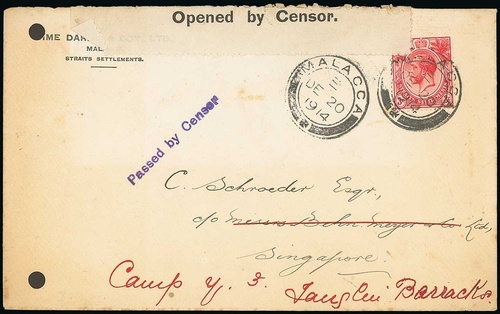 Opened by Censor.
IME DAR
MAL
STRAITS SETTLEMENTS.
MALACCA
DE 20
1914
MALACCA
Passed by Censor
C. Schroeder Esqr.,
c/o Messrs Behn. Meyer & Co Ltd,
Singapore.
Camp Y. 3 Tanglin Barracks.